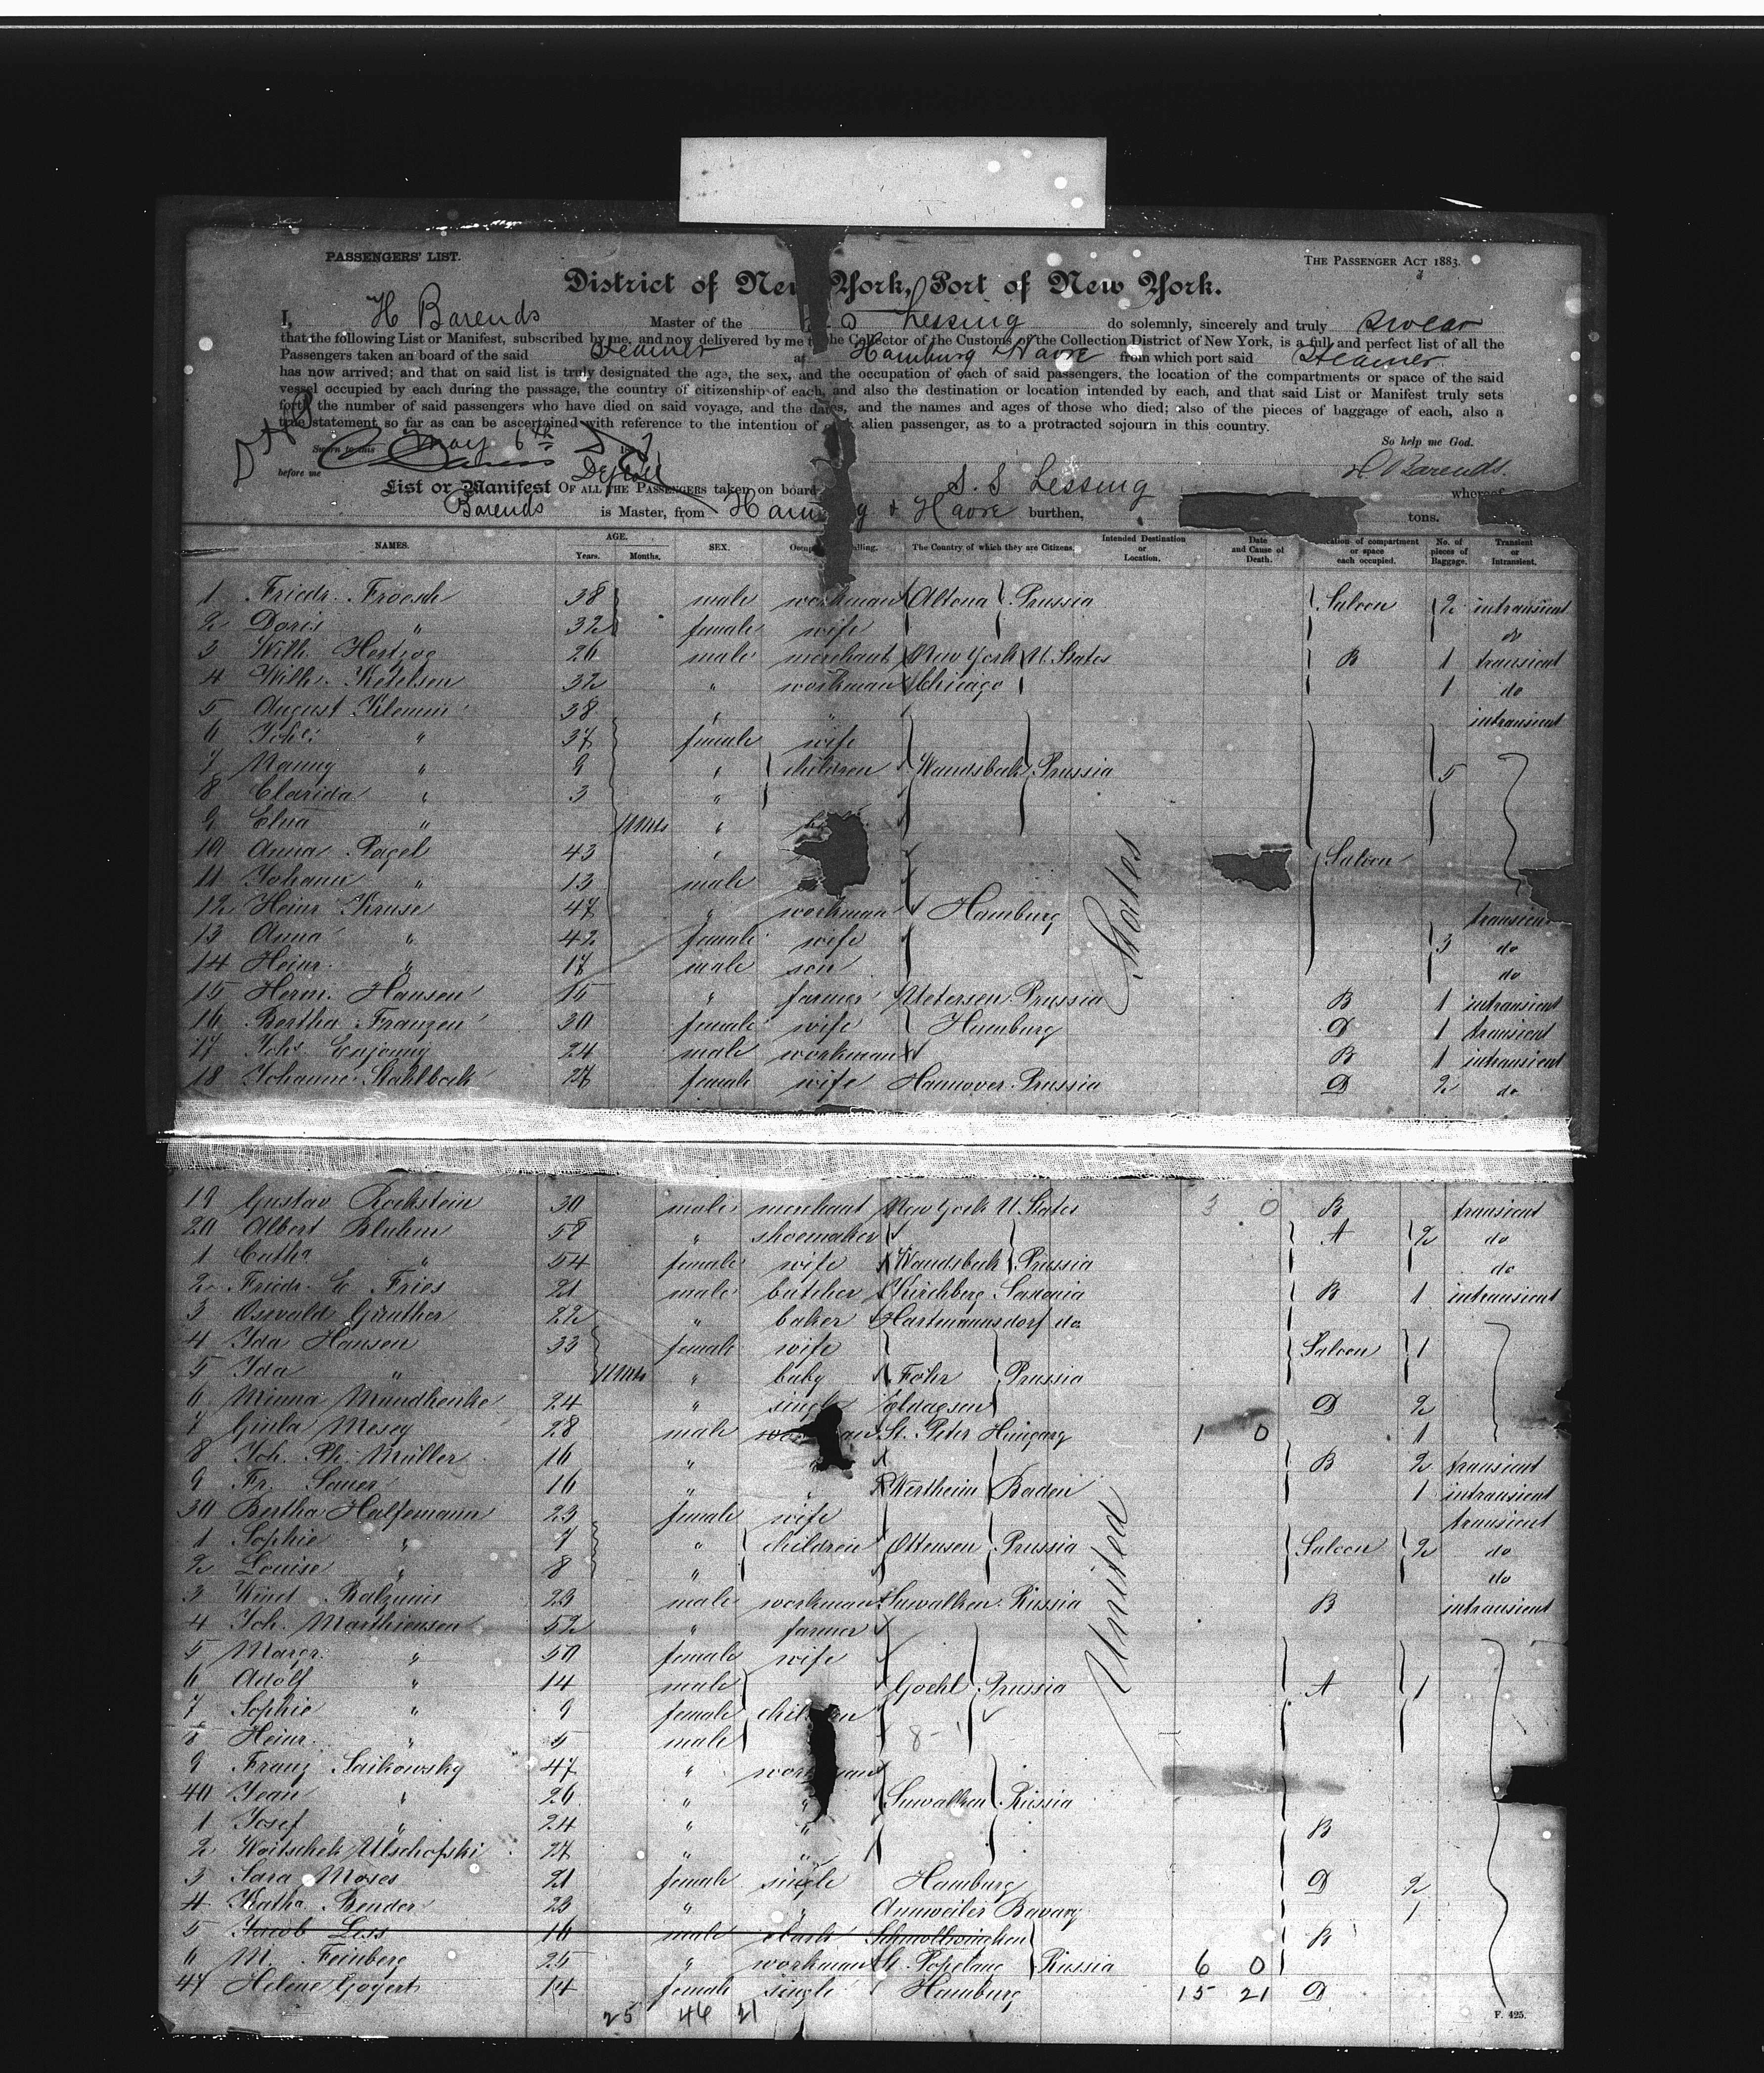 PASSENGERS' LIST.
THE PASSENGER ACT 1883.
District of New York, Port of New York.
I, H Barends Master of the Lessing do solemnly, sincerely and truly swear
that the following List or Manifest, subscribed by me, and now delivered by me to the Collector of the Customs of the Collection District of New York, is a full and perfect list of all the
Passengers taken on board of the said Steamer at Hamburg & Havre from which port said Steamer
has now arrived; and that on said list is truly designated the age, the sex, and the occupation of each of said passengers, the location of the compartments or space of the said
vessel occupied by each during the passage, the country of citizenship of each, and also the destination or location intended by each, and that said List or Manifest truly sets
forth the number of said passengers who have died on said voyage, and the dates, and the names and ages of those who died; also of the pieces of baggage of each, also a
true statement so far as can be ascertained with reference to the intention of each alien passenger, as to a protracted sojourn in this country.
Sworn to this May 6th
So help me God.
before me
H Barends
List or Manifest OF ALL THE PASSENGERS taken on board S. S Lessing whereof
Barends is Master, from Hamburg & Havre burthen, tons.
NAMES. AGE. Years. Months. SEX. Occupation or calling. The Country of which they are Citizens. Intended Destination or Location. Date and Cause of Death. Location of compartment or space each occupied. No. of pieces of Baggage. Transient or Intransient.
1 Friedr. Froesch 38 male workman Altona Prussia Saloon 2 intransient
2 Doris " 32 female wife do
3 Wilh. Hertzog 26 male merchant New York U. States B 1 transient
4 Wilh. Ketelsen 32 " workman Chicago 1 do
5 August Klemm 38 " " intransient
6 Joh. " 37 female wife
7 Nanny " 9 " children Wandsbeck Prussia 5
8 Clarida " 3 "
9 Elna " 11 Mts "
10 Anna Pagel 43 " Saloon
11 Johann " 13 male
12 Heinr Kruse 47 " workman Hamburg transient
13 Anna " 42 female wife 3 do
14 Heinr. " 17 male son do
15 Herm. Hansen 15 " farmer Uetersen Prussia B 1 intransient
16 Bertha Franzen 30 female wife Hamburg D 1 transient
17 Johs 24 male workman B 1 intransient
18 Johanne Stahlbock 27 female wife Hannover Prussia D 2 do
19 Gustav Rockstein 30 male merchant New York U. States 3 0 B transient
20 Albert Bluhm 58 " shoemaker A 2 do
1 Catha " 54 female wife Wandsbeck Prussia do
2 Friedr. E. Fries 21 male butcher Kirchberg Saxonia B 1 intransient
3 Oswald Günther 22 " baker Hartmannsdorf do
4 Ida Hansen 33 female wife Saloon 1
5 Ida " 11 Mts " baby Föhr Prussia
6 Minna Mundhenke 24 " single Eldagsen D 2
7 Giula Mesey 28 male workman St. Peter Hungary 1 0 1
8 Joh. Ph. Müller 16 " " B 2 transient
9 Fr. Sauer 16 " " Wertheim Baden 1 intransient
30 Bertha Halfemann 23 female wife transient
1 Sophie " 7 " children Ottensen Prussia Saloon 2 do
2 Louise " 8 " do
3 Balzunis 23 male workman Suwalken Russia B intransient
4 Joh. Marthiensen 52 " farmer
5 Margr. " 50 female wife
6 Adolf " 14 male Goehl Prussia A 1
7 Sophie " 9 female children
8 Heinr. " 5 male 8-
9 Franz Saikowsky 47 " workman
40 Jean " 26 " " Suwalken Russia
1 Josef " 24 " " B
2 Woitschek Ulschofski 27 " "
3 Sara Moses 21 female single Hamburg D 2
4 Katha Bender 23 " " Annweiler Bavary 1
5 Jacob Less 16 male clark B
6 M. Feinberg 25 " workman Popelang Russia 6 0
47 Helene Goyert 14 female single Hamburg 15 21 D
25 46 21
United States
F. 425.